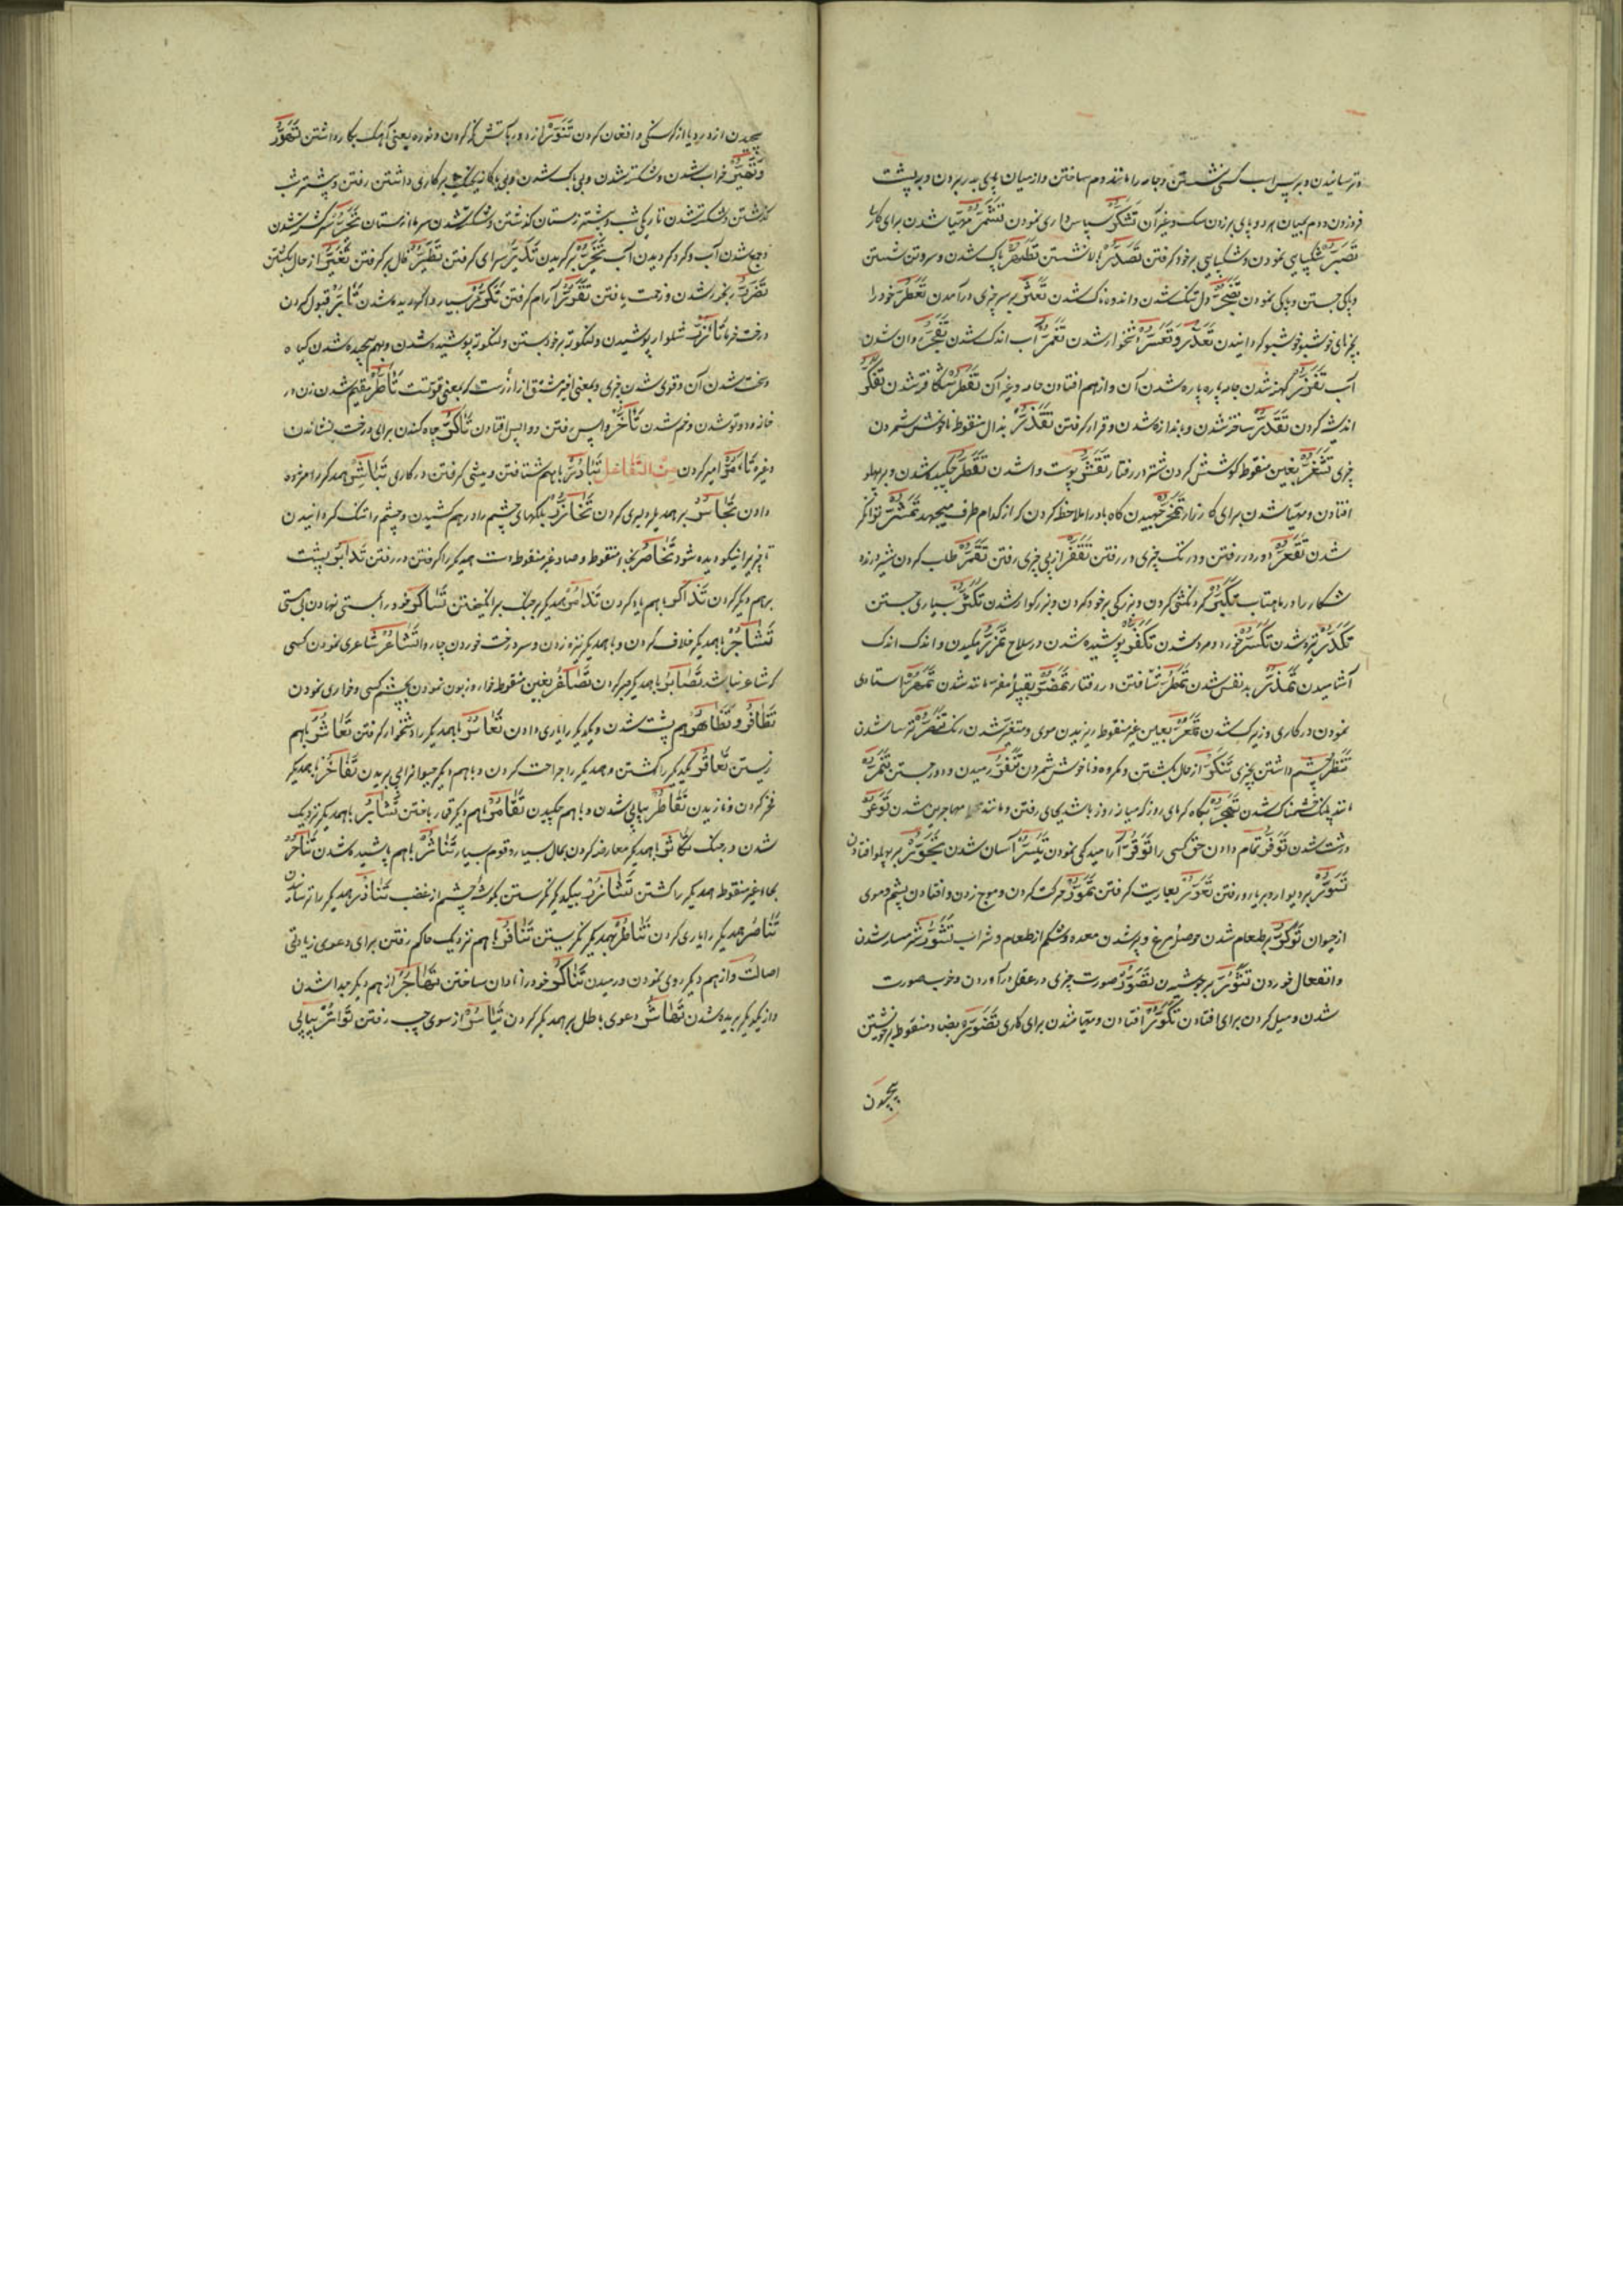 و ترسانیدن و بر پس اسب کسی نشستن و جامه را مانند دم ساختن و از میان پای بدر بردن و بر پشت
فرو زدن و دم بمیان هر دو پای بر زدن سک و غیر آن تَشَكُّر سپاس داری نمودن تَشَمُّر مهیا شدن برای کار
تَصَبُّر شکیبایی نمودن و شکیبایی بر خود گرفتن تَصَدُّر بالا نشستن تَطَهُّر پاک شدن و سر و تن شستن
و پاکی جستن و پاکی نمودن تَضَجُّر دل تنک شدن و اندوه ناک شدن تَعَثُّر بر سر چیزی در آمدن تَعَطُّر خود را
بچیزهای خوشبو خوشبو گردانیدن تَعَذُّر و تَعَسُّر دشخوار شدن تَغَمُّر آب اندک شدن تَفَجُّر روان شدن
آب تَفَزُّر کهنه شدن جامه پاره پاره شدن آن و از هم افتادن جامه و غیر آن تَفَطُّر شکافته شدن تَفَكُّر
اندیشه کردن تَقَدُّر ساخته شدن و باندازه شدن و قرار گرفتن تَقَذُّر بذال منقوط ناخوش شمردن
چیزی بغین منقوط کوشش کردن شتر در رفتار تَقَشُّر پوست وا شدن تَقَطُّر چکیده شدن و بر پهلو
افتادن و مهیا شدن برای کارزار تَمَخُّر کاه باد را ملاحظه کردن که از کدام طرف میجهد تَمَشُّر توانگر
شدن تَقَعُّر دور در رفتن و در تک چیزی در رفتن تَقَفُّر از پی چیزی رفتن تَقَمُّر طلب کردن شیر درنده
شکار را در ماهتاب تَكَبُّر گردنکشی کردن و بزرگی بر خود کردن و بزرکوار شدن تَكَثُّر بسیاری جستن
تَكَدُّر تیره شدن تَكَسُّر خورد و مرد شدن تَكَفُّر پوشیده شدن در سلاح تَمَزُّر مکیدن و اندک اندک
آشامیدن تَمَذُّر بد نفس شدن تَمَطُّر شتافتن در رفتار تَمَضُّر بقبیله مضر مانند شدن تَمَهُّر استادی
نمودن در کاری و زیرک شدن تَمَعُّر بعین غیر منقوط ریزیدن موی و متغیر شدن رنک تَنَصُّر ترسا شدن
تَنَظُّر چشم داشتن بچیزی تَنَكُّر از حال بگشتن و مکروه و ناخوش شمردن تَنَفُّر رمیدن و دور جستن تَنَمُّر
مانند پلنک خشمناک شدن تَهَجُّر بگاه گرمای روز که میانه روز باشد بجای رفتن و مانند مهاجرین شدن تَوَعُّر
درشت شدن تَوَفُّر تمام دادن حق کسی را تَوَقُّر آرامیدگی نمودن تَيَسُّر آسان شدن تَجَوُّر بر پهلو افتادن
تَسَوُّر بر دیوار و بر باره رفتن تَعَوُّر بعاریت گرفتن تَمَوُّر حرکت کردن و موج زدن و افتادن پشم و موی
از حیوان تَوَكُّر پر طعام شدن حوصله مرغ و پر شدن معده و شکم از طعام و شراب تَشَوُّر شرمسار شدن
و انفعال خوردن تَثَوُّر بر جوشیدن تَصَوُّر صورت چیزی در عقل در آوردن و خوب صورت
شدن و میل کردن برای افتادن تَكَوُّر افتادن و مهیا شدن برای کاری تَضَوُّر بضاد منقوط بر خویشتن
پیچیدن
پیچیدن از درد یا از گرسنکی و افغان کردن تَنَوُّر از دور بآتش نگه کردن و نوره یعنی آهک بکار داشتن تَهَوُّر
و تَهَيُّر خراب شدن و شکسته شدن و بی باک شدن و بی باکانه بر کاری داشتن رفتن و بیشتر شب
گذشتن و شکسته شدن تاریکی شب و بیشتر زمستان گذشتن و شکسته شدن سرما از زمستان تَحَيُّر سرگشته شدن
و جمع شدن آب و گرد گردیدن آب تَخَيُّر بر گزیدن تَدَيُّر سرای گرفتن تَطَيُّر فال بد گرفتن تَغَيُّر از حال بگشتن
شدن و زحمت یافتن تَقَرُّر آرام گرفتن تَكَرُّر بسیار بار گردیده شدن تَأَبُّر قبول کردن
درخت خرما تَأَزُّر شلوار پوشیدن و لنکوته بر خود بستن و لنکوته پوشیده شدن و بهم پیچیده شدن گیاه
و سخت شدن آن و قوی شدن چیزی و بمعنی اخیر مشتق از ازرست که بمعنی قوتست تَأَطُّر مقیم شدن زن در
خانه و دو تو شدن و خم شدن تَأَخُّر واپس رفتن و واپس افتادن تَأَكُّر چاه کندن برای درخت نشاندن
و غیره تَأَمُّر امیر کردن من التفاعل تَبَادُر باهم شتافتن و پیشی گرفتن در کاری تَبَاشُر همدیکر را مژده
دادن تَجَاسُر بر همدیگر دلیری کردن تَخَازُر پلکهای چشم را در هم کشیدن و چشم را تنک گردانیدن
تا چیزی را نیکو دیده شود تَخَاصُر بخاء منقوط و صاد غیر منقوط دست همدیکر را گرفتن در رفتن تَدَابُر پشت
بر هم دیکر کردن تَذَاكُر باهم یاد کردن تَذَامُر همدیکر بر جنک برانگیختن تَسَاكُر خود را بمستی نهادن بی مستی
تَشَاجُر باهمدیکر خلاف کردن و باهمدیکر نیزه زدن و سر درخت خوردن چاروا تَشَاعُر شاعری نمودن کسی
که شاعر نباشد تَصَابُر باهمدیکر صبر کردن تَصَاغُر بغین منقوط خوار و زبون نمودن بچشم کسی و خواری نمودن
تَظَافُر و تَظَاهُر هم پشت شدن و یکدیکر را یاری دادن تَعَاسُر باهمدیکر را دشخوار گرفتن تَعَاشُر باهم
زیستن تَعَاقُر یکدیکر را کشتن و همدیکر را جراحت کردن و باهم دیکر حیوانرا پی بریدن تَفَاخُر باهمدیکر
فخر کردن و نازیدن تَقَاطُر پیاپی شدن و باهم چکیدن تَقَامُر باهم دیکر قمار باختن باهمدیکر نزدیک
شدن در جنک تَكَاثُر باهمدیکر معارضه کردن بمال بسیار و قوم بسیار تَنَاثُر باهم پاشیده شدن تَنَاحُر
بحاء غیر منقوط همدیکر را کشتن تَشَازُر بیکدیکر نگریستن بگوشه چشم از غضب تَنَاذُر همدیکر را ترسانیدن
تَنَاصُر همدیکر را یاری کردن تَنَاظُر بهمدیکر نگریستن تَنَافُر باهم نزدیک حاکم رفتن برای دعوی زیادتی
اصالت و از هم دیکر روی نمودن و رمیدن تَنَاكُر خود را نادان ساختن تَهَاجُر از هم دیکر جدا شدن
و از یکدیکر بریده شدن تَهَاتُر دعوی باطل بر همدیکر کردن تَيَاسُر از سوی چپ رفتن تَوَاتُر پیاپی